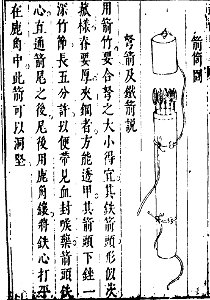 箭筒圖
弩箭及鐵箭說
用箭竹要合弩之大小得宜其鐵箭頭形似
樣脊要厚夾鋼者方能透甲其箭頭下銼一
深竹節長五分許以便帶見血封喉藥箭頭鐵
心直通箭尾之後尾後用鹿角鑲將鐵心打平
在鹿角中此箭可以洞堅